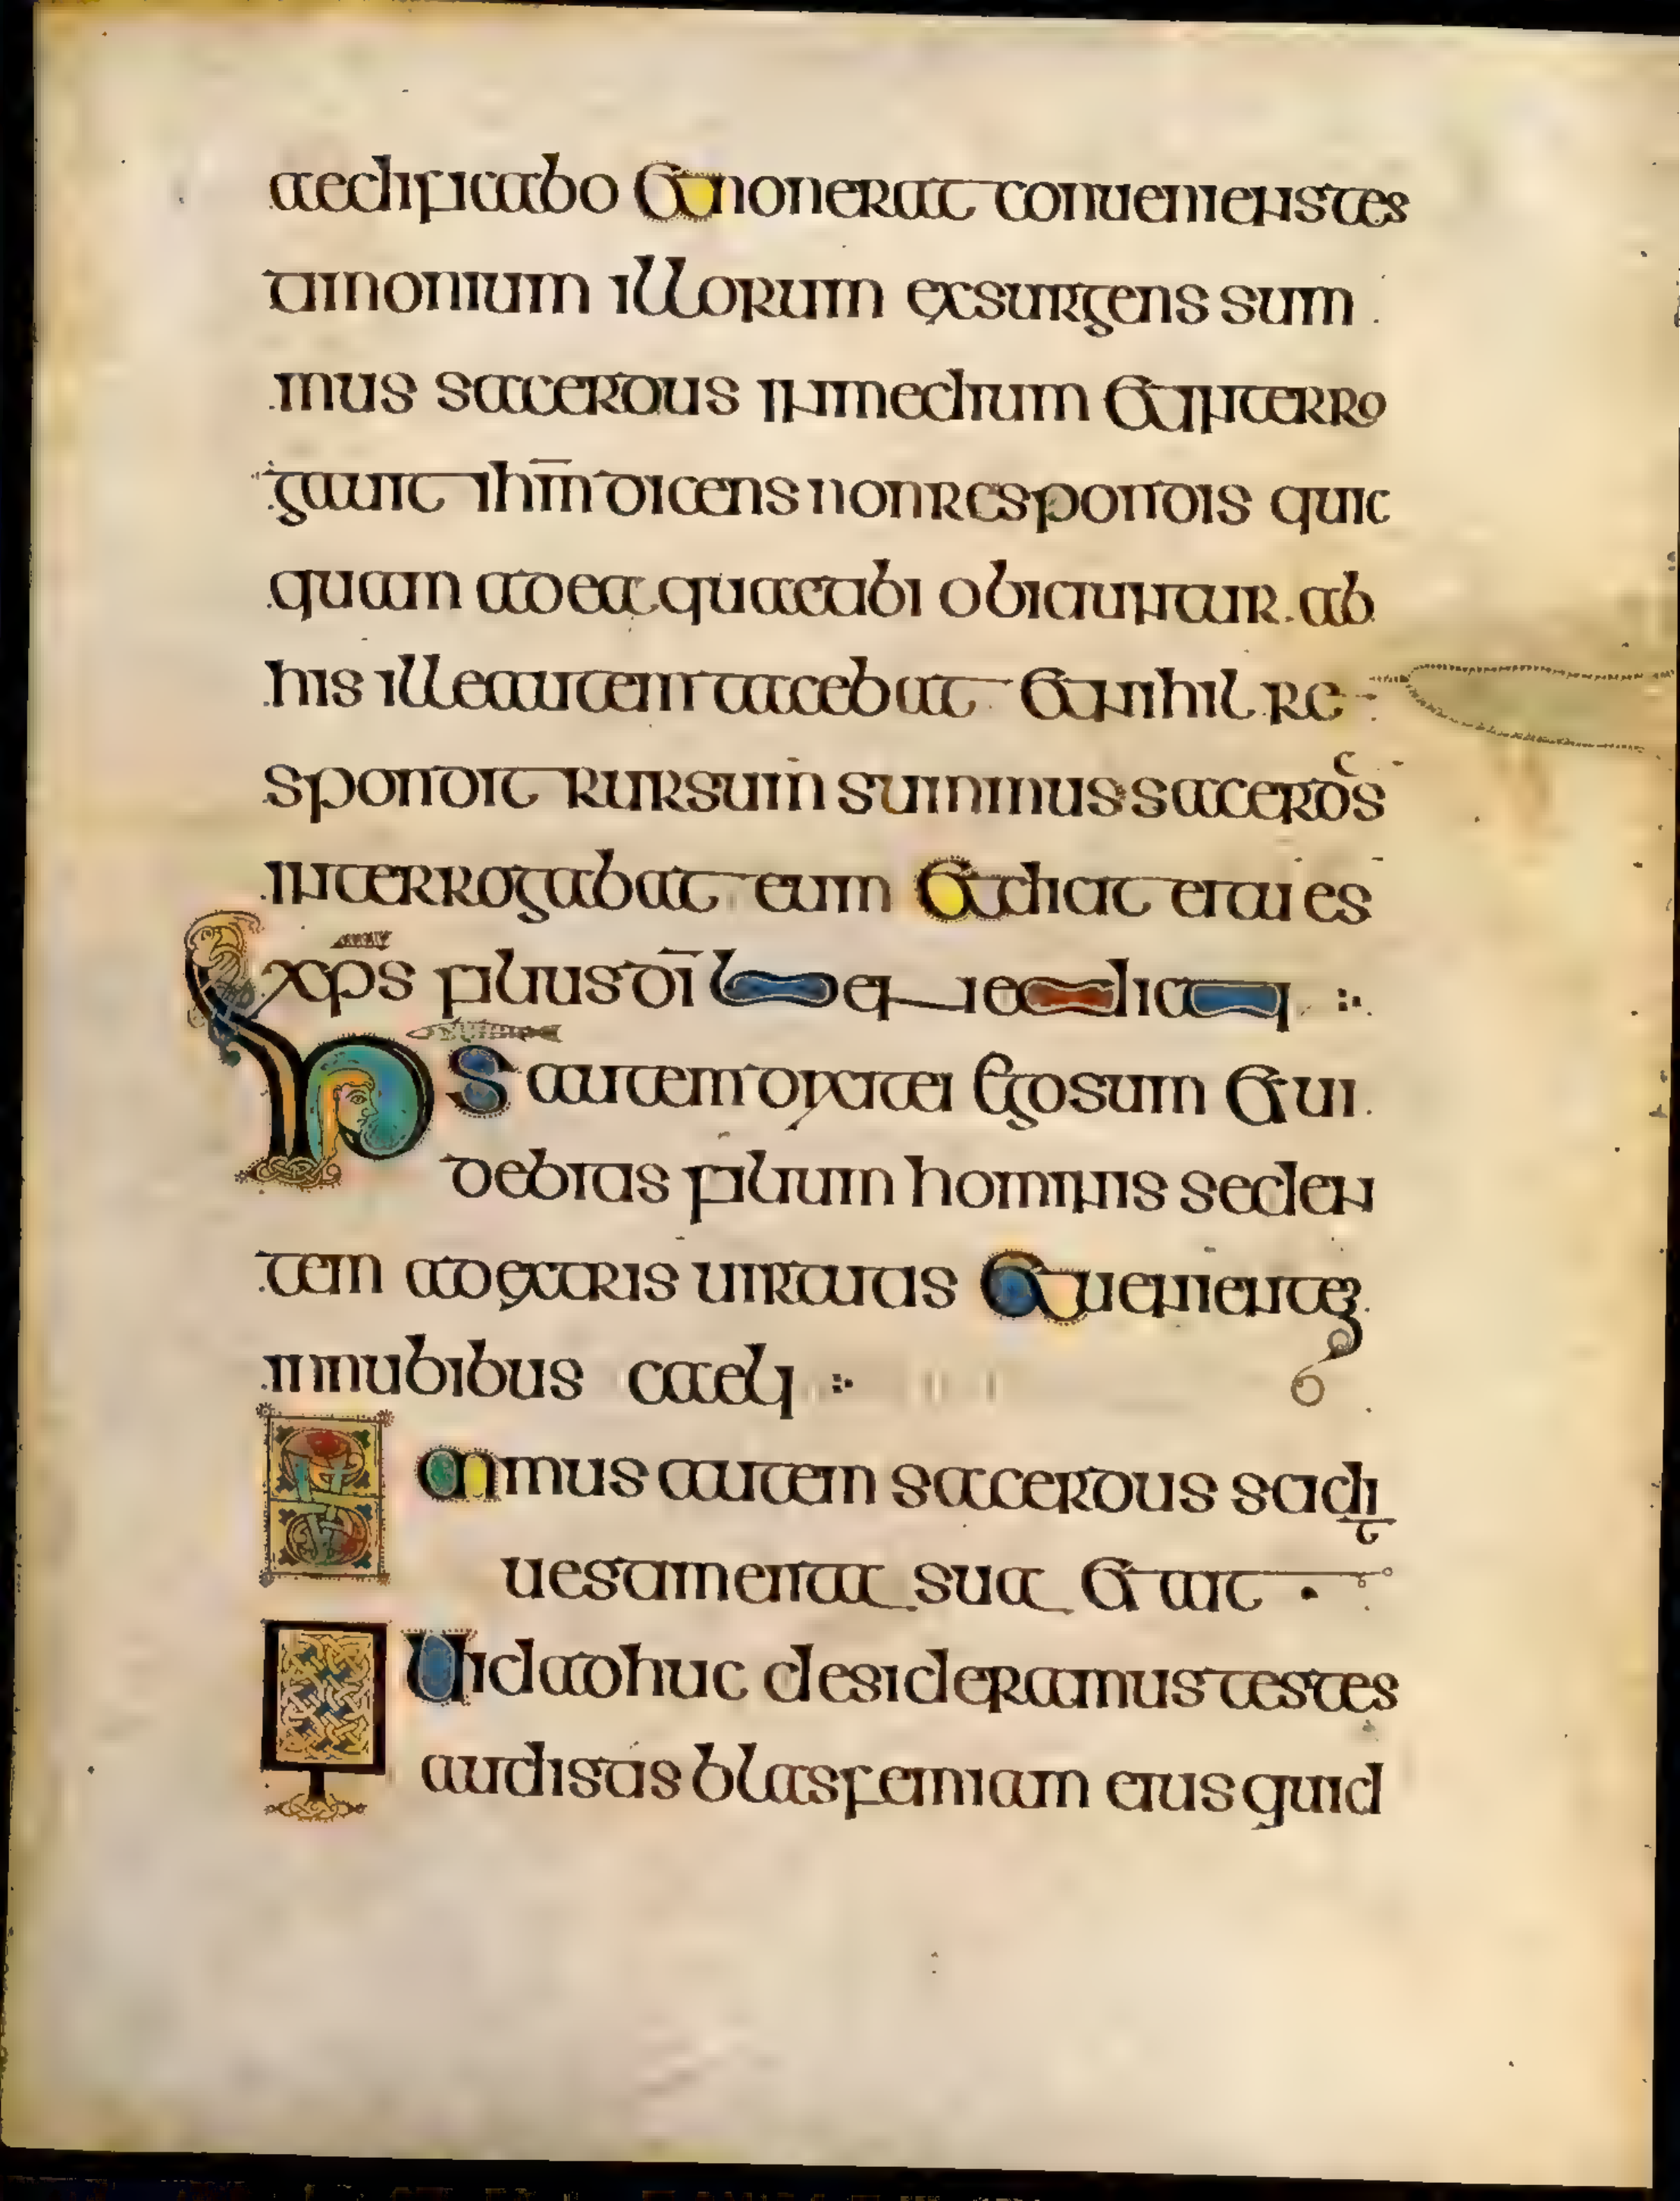 aedificabo Et non erat conueniens tes
timonium illorum exsurgens sum
mus sacerdus in medium Et interro
gauit ihm dicens non respondis quic
quam ad ea quae tibi obiciuntur ab
his ille autem tacebat Et nihil re
spondit rursum summus sacerdos
interrogabat eum Et dicit ei tu es
xps filius di benedicti
ihs autem dixit ei Ego sum Et ui
debitis filium hominis seden
tem ad dextris uirtutis Et uenientem
in nubibus caeli
Summus autem sacerdus scidit
uestimenta sua Et ait
Quid adhuc desideramus testes
audistis blasfemiam eius quid